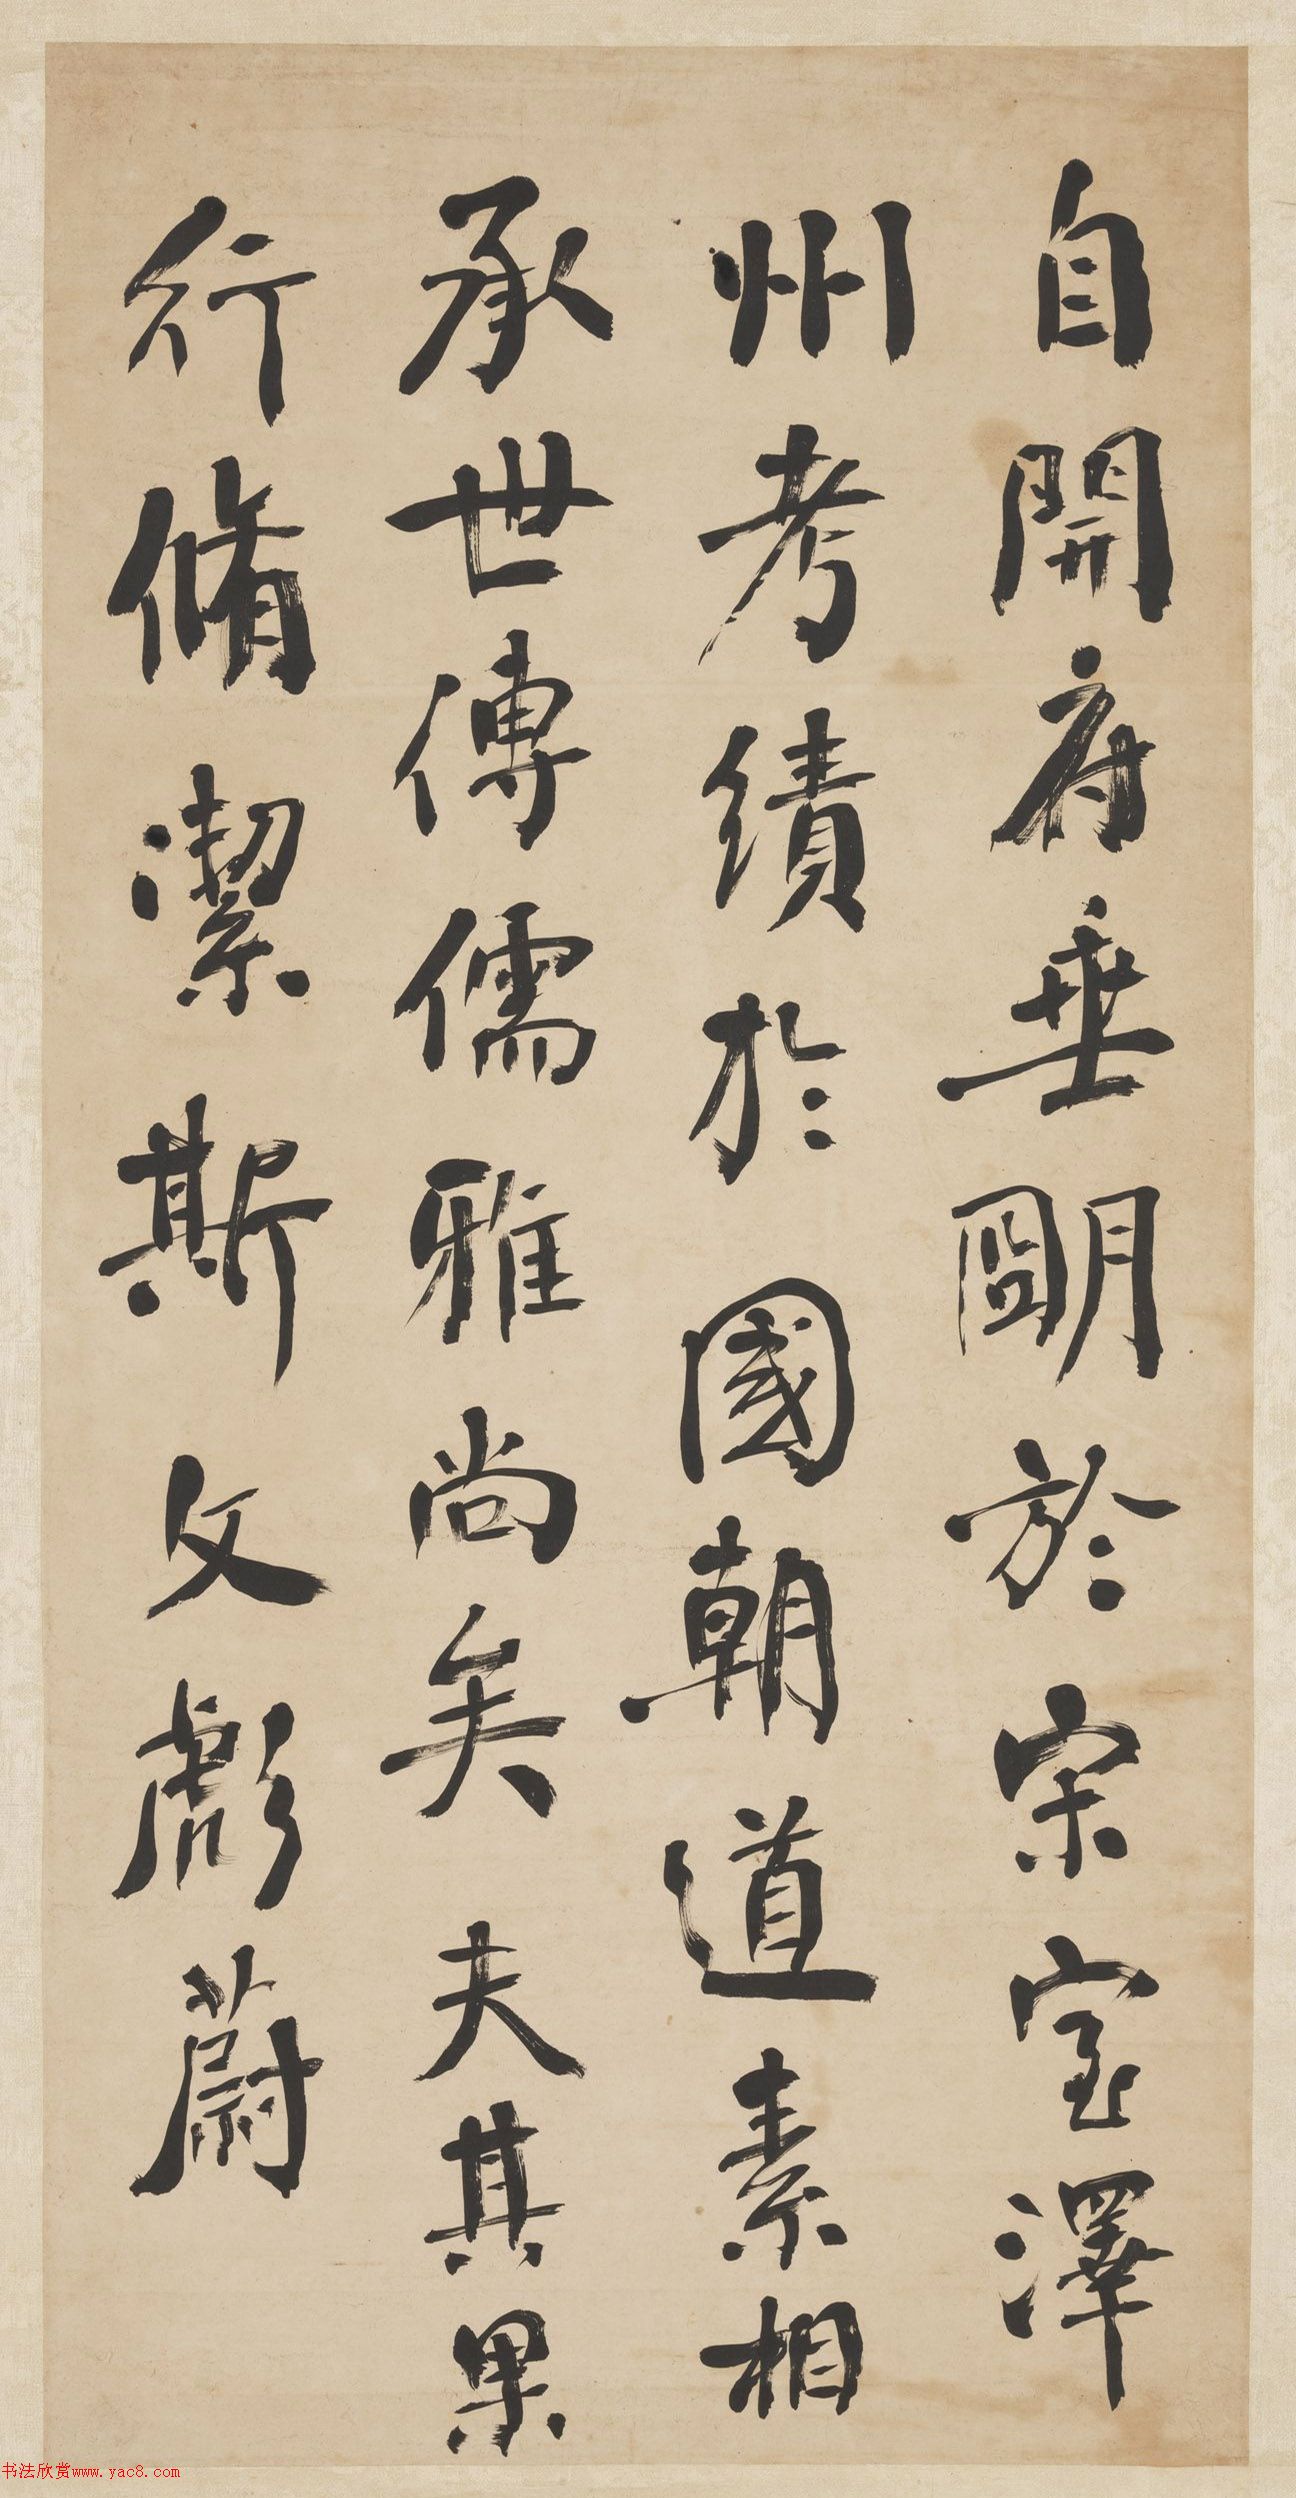 自開府垂明於宗室澤
州考績於國朝道素相
承世傳儒雅尚矣夫其果
行脩潔斯文彪蔚
书法欣赏www.yac8.com